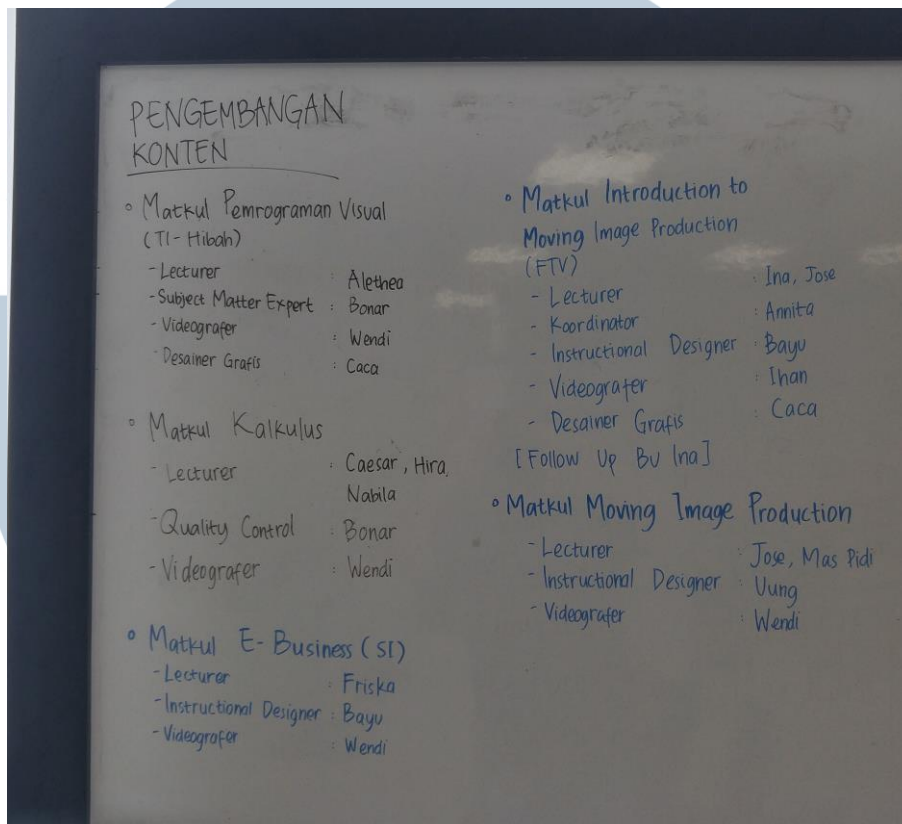 PENGEMBANGAN
KONTEN
• Matkul Pemrograman Visual
(TI - Hibah)
- Lecturer : Alethea
- Subject Matter Expert : Bonar
- Videografer : Wendi
- Desainer Grafis : Caca
• Matkul Kalkulus
- Lecturer : Caesar, Hira,
Nabila
- Quality Control : Bonar
- Videografer : Wendi
• Matkul E-Business (SI)
- Lecturer : Friska
- Instructional Designer : Bayu
- Videografer : Wendi
• Matkul Introduction to
Moving Image Production
(FTV)
- Lecturer : Ina, Jose
- Koordinator : Annita
- Instructional Designer : Bayu
- Videografer : Ihan
- Desainer Grafis : Caca
[Follow Up Bu Ina]
• Matkul Moving Image Production
- Lecturer : Jose, Mas Pidi
- Instructional Designer : Uung
- Videografer : Wendi